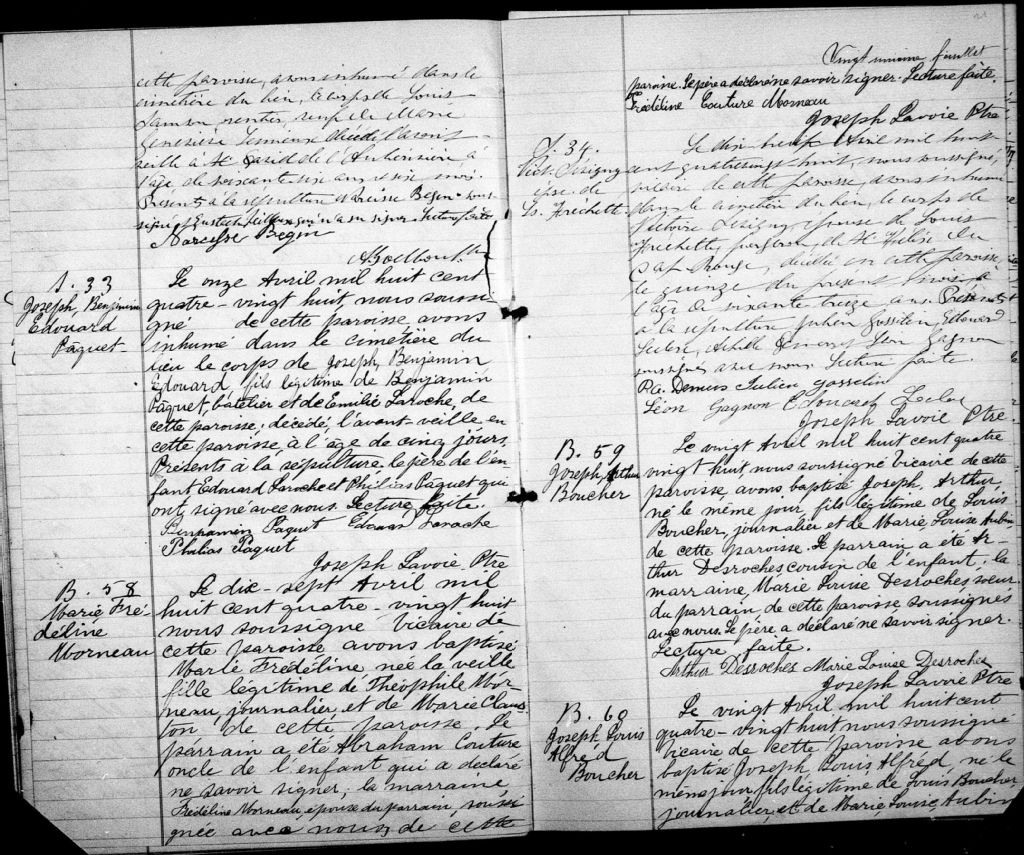 cette paroisse, avons inhumé dans le
cimetière du lieu, le corps de Louis
rentier, veuf de Marie
Geneviève
à St David de l'Auberivière à
l'âge de soixante six ans six mois.
Présents à la sépulture Narcisse Begin sous-
signé et qui n'a su signer. Lecture faite
Narcisse Begin
S. 33
Joseph, Benjamin
Edouard
Paquet
Le onze Avril mil huit cent
quatre-vingt huit, nous soussi
gné de cette paroisse, avons
inhumé dans le cimetière du
lieu le corps de Joseph, Benjamin
Edouard, fils légitime de Benjamin
Paquet, batelier et de Emilie Laroche, de
cette paroisse, décédé, l'avant-veille, en
cette paroisse, à l'âge de cinq jours.
Présents à la sépulture, le père de l'en-
fant Edouard Laroche et Philias Paquet qui
ont signé avec nous. Lecture faite.
Benjamin Paquet Edouard Laroche
Philias Paquet
Joseph Lavoie Ptre
B. 58
Marie Fré
déline
Morneau
Le dix-sept Avril mil
huit cent quatre-vingt huit
nous soussigné Vicaire de
cette paroisse avons baptisé
Marie Frédéline née la veille
fille légitime de Théophile Mor-
neau, journalier, et de Marie Claus-
ton de cette paroisse. Le
parrain a été Abraham Couture
oncle de l'enfant qui a déclaré
ne savoir signer, la marraine,
Frédéline Morneau, épouse du parrain, soussi
gnée avec nous, de cette
Vingt unième feuillet
paroisse. Le père a déclaré ne savoir signer. Lecture faite.
Frédéline Couture Morneau
Joseph Lavoie Ptre
S. 34.
Vict. Lésigny
épse. de
Ls. Fréchette
Le dix huit Avril mil huit
cent quatrevingt huit, nous soussigné,
vicaire de cette paroisse, avons inhumé
dans le cimetière du lieu, le corps de
Victoire Lésigny, épouse de Louis
Fréchette, de St
Cap Rouge, décédée en cette paroisse,
le quinze du présent mois, à
l'âge de soixante treize ans. Présents
à la sépulture Julien Gosselin, Edouard
Leclerc, Achille Léon Gagnon
soussignés avec nous. Lecture faite.
P.a. Demers Julien Gosselin
Léon Gagnon Edouard Leclerc
Joseph Lavoie Ptre
B. 59
Joseph, Arthur
Boucher
Le vingt Avril mil huit cent quatre
vingt huit, nous soussigné Vicaire de cette
paroisse, avons baptisé Joseph, Arthur,
né le même jour, fils légitime de Louis
Boucher, journalier et de Marie Louise Aubin
de cette paroisse. Le parrain a été Ar-
thur Desroches cousin de l'enfant, la
marraine, Marie Louise Desroches soeur
du parrain, de cette paroisse soussignés
avec nous. Le père a déclaré ne savoir signer.
Lecture faite.
Arthur Desroches Marie Louise Desroches
Joseph Lavoie Ptre
B. 60
Joseph Louis
Alfred
Boucher
Le vingt Avril mil huit cent
quatre-vingt huit nous soussigné
Vicaire de cette paroisse avons
baptisé Joseph, Louis, Alfred, né le
même jour, fils légitime de Louis Boucher,
journalier, et de Marie, Louise Aubin